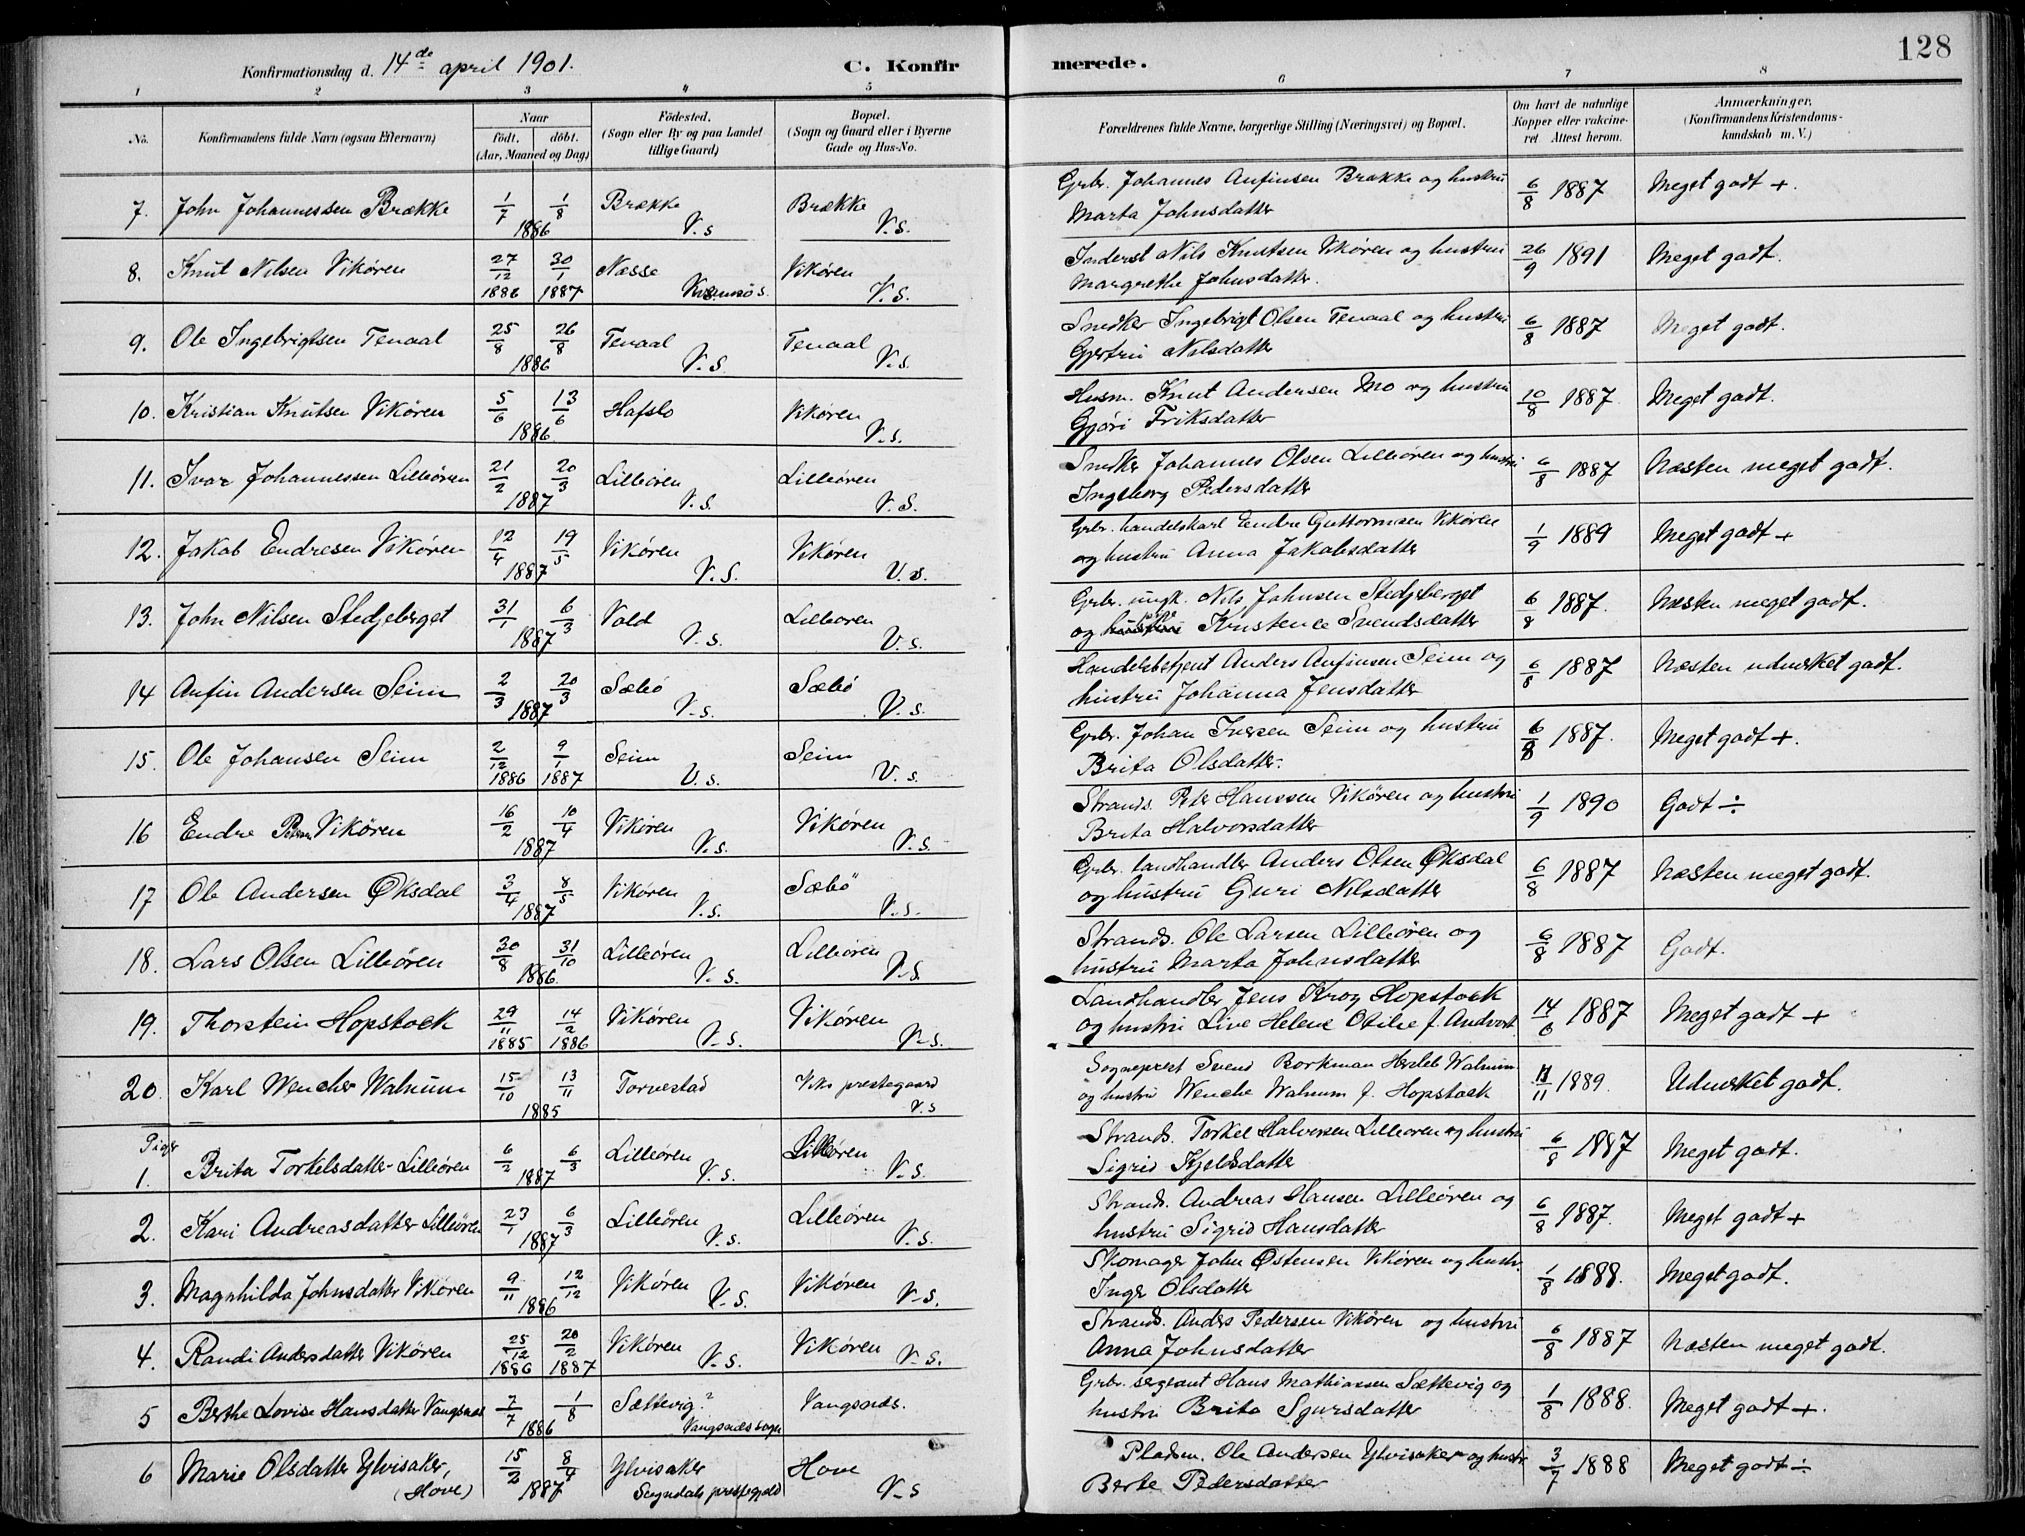 128
Konfirmationsdag d. 14de april 1901.
C. Konfirmerede.
1 2 3 4 5 6 7 8
No.
Konfirmandens fulde Navn (ogsaa Efternavn)
Naar
födt. döbt.
(Aar, Maaned og Dag)
Födested.
(Sogn eller By og paa Landet
tillige Gaard)
Bopæl.
(Sogn og Gaard eller i Byerne
Gade og Hus-No.
Forældrenes fulde Navne, borgerlige Stilling (Næringsvei) og Bopæl.
Om havt de naturlige
Kopper eller vakcine-
ret Attest herom.
Anmærkninger,
(Konfirmandens Kristendoms-
kundskab m. V.)
7. John Johannessen Brække 1/7 1/8 1886 Brække V.s Brække V.s. Grbr. Johannes Anfinsen Brække og hustru
Marta Johnsdatter 6/8 1887 Meget godt +.
8. Knut Nilsen Vikören 27/12 1886 30/1 1887 Næsse Vikören V.s. Inderst Nils Knutsen Vikören og hustru
Margrethe Johnsdatter. 26/9 1891 Meget godt.
9. Ole Ingebrigtsen Tenaal 25/8 26/8 1886 Tenaal V.s. Tenaal V.s. Snedker Ingebrigt Olsen Tenaal og hustru
Gjertru Nilsdatter 6/8 1887 Meget godt.
10. Kristian Knutsen Vikören 5/6 13/6 1886 Hafslo Vikören V.s. Husm. Knut Andersen Mo og hustru
Gjöri Eriksdatter 10/8 1887 Meget godt.
11. Ivar Johannessen Lilleören 21/2 20/3 1887 Lilleören V.s. Lilleören V.s. Snedker Johannes Olsen Lilleören og hustru
Ingeborg Pedersdatter 6/8 1887 Næsten meget godt.
12. Jakob Endresen Vikören 12/4 19/5 1887 Vikören V.s. Vikören V.s. Grbr. handelskarl Endre Guttormsen Vikören
og hustru Anna Jakobsdatter 1/9 1889 Meget godt +
13. John Nilsen Stedjeberget 31/1 6/3 1887 Vold V.s. Lilleoren V.s. Grbr. ungk. Nils Johnsen Stedjeberget
og Kristence Svendsdatter 6/8 1887. Næsten meget godt.
14 Anfin Andersen Seim 2/3 20/3 1887 Sæbö V.s. Sæbö V.s. Handelsbetjent Anders Anfinsen Seim og
hustru Johanna Jensdatter 6/8 1887 Næsten udmerket godt.
15. Ole Johansen Seim 2/12 1886 9/1 1887 Seim V.s. Seim V.s. Grbr. Johan Iversen Seim og hustru
Brita Olsdatter. 6/8 1887. Meget godt +.
16 Endre Vikören 16/2 10/4 1887 Vikören V.s. Vikören V.s. Strands. Peter Hanssen Vikören og hustru
Brita Halvorsdatter 1/9 1890 Godt ÷
17 Ole Andersen Öksdal 3/4 8/5 1887 Vikören V.s. Sæbö V.s. Grbr. landhandler Anders Olsen Öksdal
og hustru Guri Nilsdatter 6/8 1887 Næsten meget godt.
18. Lars Olsen Lilleören 30/8 31/10 1886. Lilleören V.s. Lilleören V.s. Strands. Ole Larsen Lilleören og
hustru Marta Johnsdatter 6/8 1887 Godt.
19. Thorstein Hopstock 29/11 1885 14/2 1886 Vikören V.s. Vikören V.s. Landhandler Jens Krog Hopstock
og hustru Line Helene Otilie f. 14/6 1887 Meget godt +
20. Karl Wencher Walnum 15/10 13/11 1885 Torvestad Viks prestegaard V.s Sogneprest Svend Borkman Hersleb Walnum
og hustru Wenche Walnum f. Hopstock 11/11 1889. Udmerket godt.
Piger
1. Brita Torkelsdatter Lilleören 6/2 6/3 1887 Lilleören V.s. Lilleören V.s. Strands. Torkel Halversen Lilleoren og hustru
Sigrid Kjelsdatter 6/8 1887 Meget godt.
2. Kari Andreasdatter Lilleören 23/1 6/3 1887 Lilleören V.s. Lilleören V.s. Strands. Andreas Hansen Lilleören og
hustru Sigrid Hansdatter 6/8 1887. Meget godt +
3. Magnhilda Johnsdatter Vikören 9/11 12/12 1886 Vikören V.s. Vikören V.s. Skomager John Östensen Vikören og hustr.
Inger Olsdatter 1/8 1888. Meget godt.
4. Randi Andersdatter Vikören 25/12 1886 20/2 1887 Vikören V.s. Vikören V.s. Strands. Anders Pedersen Vikören og hustru
Anna Johnsdatter 6/8 1887 Næsten meget godt.
5 Berthe Lovise Hansdatter Vangsnæs 7/7 1/8 1886 Sættevig? Vangsnæs sogn Vangsnæs. Grbr. sergeant Hans Mathiassen Sættevig og
hustru Brita Sjursdatter 1/8 1888. Meget godt +.
6 Marie Olsdatter Ylvisaker, (Hove) 15/2 8/4 1887 Ylvisaker Sogndals prestegjeld Hove V.s Pladsm. Ole Andersen Ylvisaker og hustr
Berte Pedersdatter 3/7 1888 Meget godt ÷